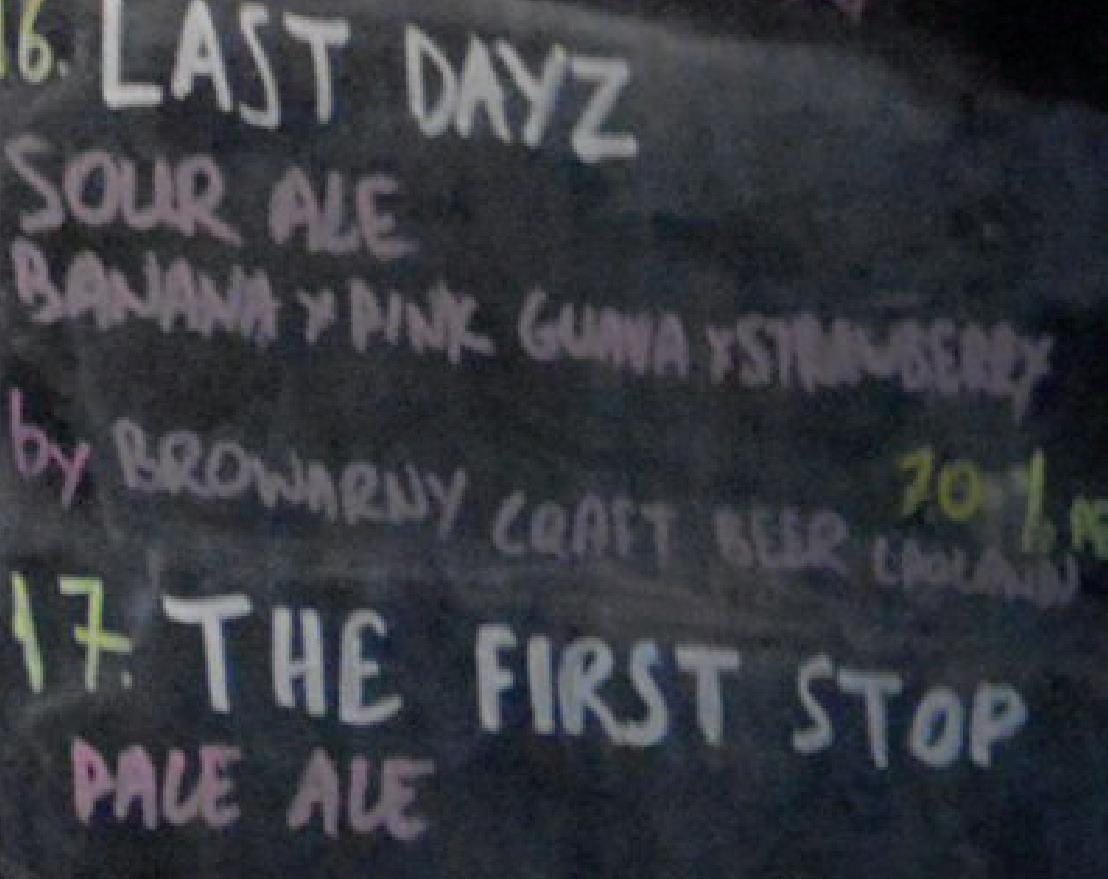 16. LAST DAYZ
SOUR ALE
BANANA x PINK GUAVA x STRAWBERRY
by BROWARNY CRAFT BEER
17. THE FIRST STOP
PALE ALE